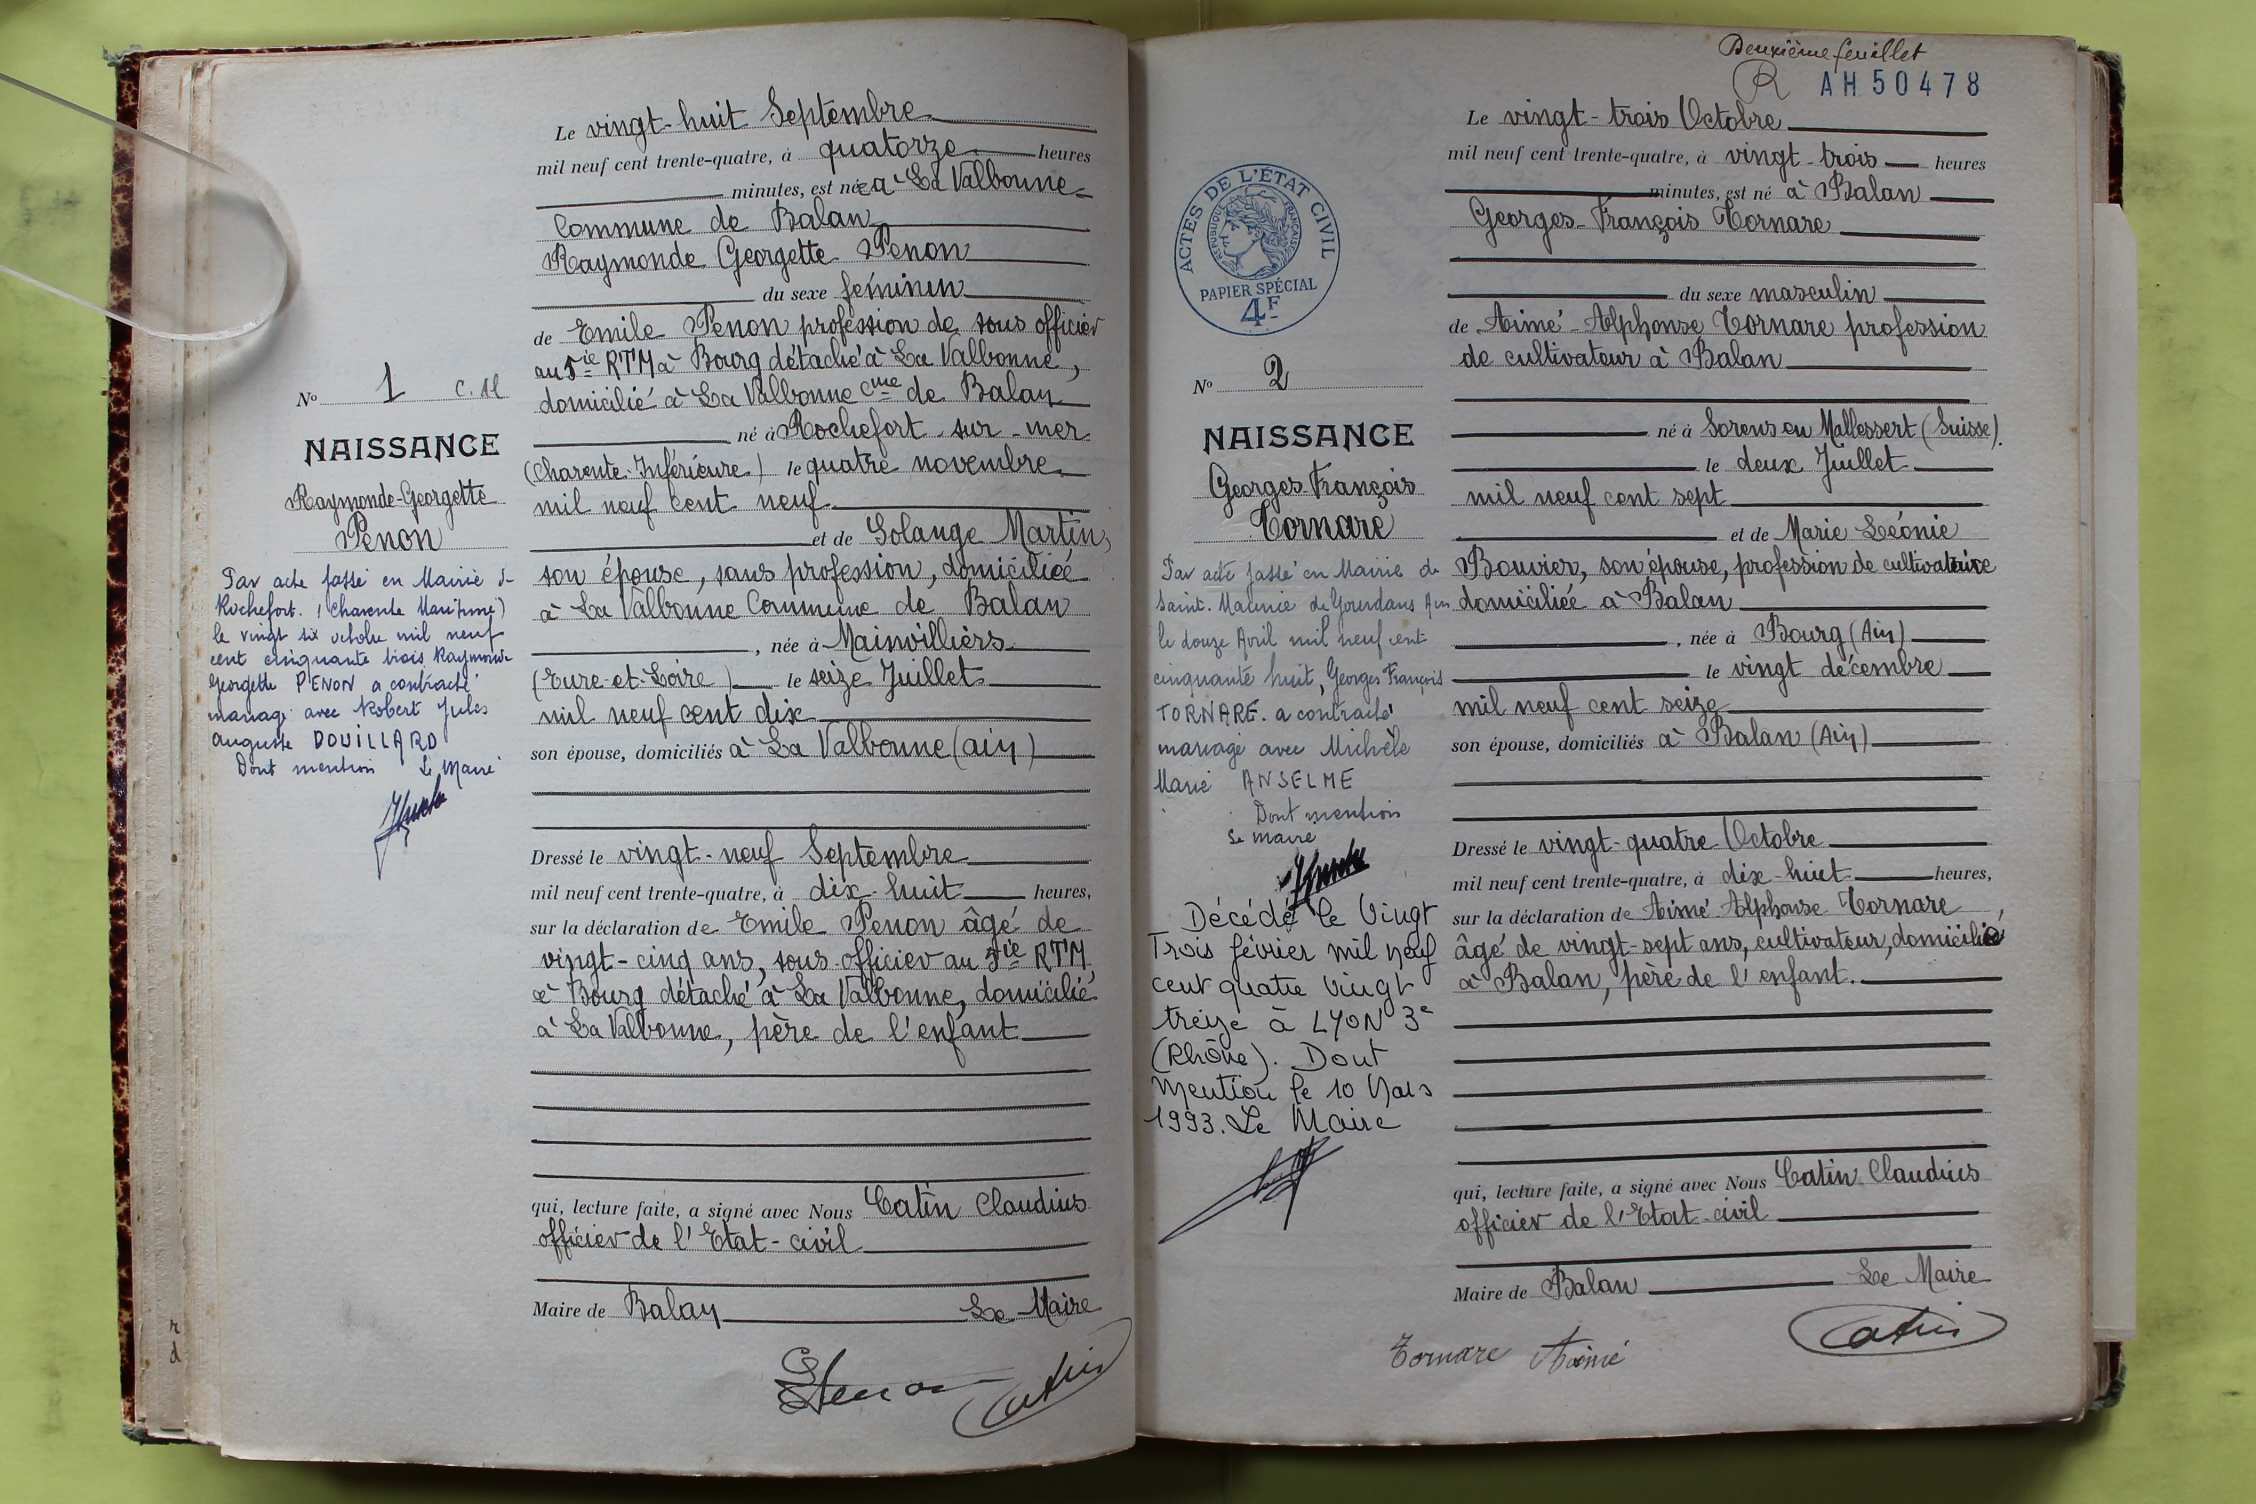 Le vingt-huit Septembre
mil neuf cent trente-quatre, à quatorze heures
minutes, est née à La Valbonne
Commune de Balan
Raymonde Georgette Penon
du sexe féminin
de Emile Penon profession de sous officier
au 5ie RTM à Bourg détaché à La Valbonne,
domicilié à La Valbonne Cme de Balan
né à Rochefort-sur-mer
(Charente-Inférieure) le quatre novembre
mil neuf cent neuf
et de Solange Martin,
son épouse, sans profession, domiciliée
à La Valbonne Commune de Balan
, née à Mainvilliers
(Eure-et-Loire) le seize Juillet
mil neuf cent dix
son épouse, domiciliés à La Valbonne (ain)
Dressé le vingt-neuf Septembre
mil neuf cent trente-quatre, à dix-huit heures,
sur la déclaration de Emile Penon âgé de
vingt-cinq ans, sous-officier au 5ie RTM
à Bourg détaché à La Valbonne, domicilié
à La Valbonne, père de l'enfant
qui, lecture faite, a signé avec Nous Catin Claudius
officier de l'Etat-civil
Maire de Balan Le Maire
Catin
No 1 C.M
NAISSANCE
Raymonde-Georgette
Penon
Par acte passé en Mairie de
Rochefort. (Charente Maritime)
le vingt six octobre mil neuf
cent cinquante trois Raymonde
Georgette PENON a contracté
mariage avec Robert Jules
Auguste DOUILLARD
Dont mention Le Maire
Deuxième feuillet
R AH50478
Le vingt-trois Octobre
mil neuf cent trente-quatre, à vingt-trois heures
minutes, est né à Balan
Georges-François Tornare
du sexe masculin
de Aimé-Alphonse Tornare profession
de cultivateur à Balan
né à Sorens en Mallessert (Suisse).
le deux Juillet
mil neuf cent sept
et de Marie Léonie
Bouvier, son épouse, profession de cultivatrice
domiciliée à Balan
, née à Bourg (Ain)
le vingt décembre
mil neuf cent seize
son épouse, domiciliés à Balan (Ain)
Dressé le vingt-quatre Octobre
mil neuf cent trente-quatre, à dix-huit heures,
sur la déclaration de Aimé-Alphonse Tornare
âgé de vingt-sept ans, cultivateur, domicilié
à Balan, père de l'enfant.
qui, lecture faite, a signé avec Nous Catin Claudius
officier de l'Etat-civil
Maire de Balan Le Maire
Tornare Aimé Catin
ACTES DE L'ÉTAT CIVIL
RÉPUBLIQUE FRANÇAISE
PAPIER SPÉCIAL
4F
No 2
NAISSANCE
Georges-François
Tornare
Par acte passé en Mairie de
Saint-Maurice de Gourdans Ain
le douze Avril mil neuf cent
cinquante huit, Georges François
TORNARE a contracté
mariage avec Michèle
Marie ANSELME
Dont mention
Le maire
Décédé le Vingt
Trois février mil neuf
cent quatre Vingt
treize à LYON 3e
(Rhône). Dont
Mention le 10 Mars
1993. Le Maire